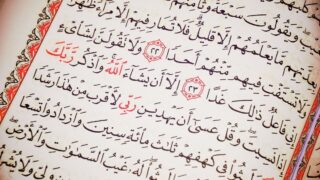 وَيَقُولُونَ سَبْعَةٌ وَثَامِنُهُمْ
مَّا يَعْلَمُهُمْ إِلَّا قَلِيلٌ فَلَا تُمَارِ فِيهِمْ إِلَّا مِرَآءً ظَٰهِرًا
وَلَا تَسْتَفْتِ فِيهِم مِّنْهُمْ أَحَدًا ٢٢ وَلَا تَقُولَنَّ لِشَا۟ىْءٍ
إِنِّى فَاعِلٌ ذَٰلِكَ غَدًا ٢٣ إِلَّآ أَن يَشَآءَ ٱللَّهُ وَٱذْكُر رَّبَّكَ
إِذَا نَسِيتَ وَقُلْ عَسَىٰٓ أَن يَهْدِيَنِ رَبِّى لِأَقْرَبَ مِنْ هَٰذَا رَشَدًا
فِى كَهْفِهِمْ ثَلَٰثَ مِا۟ئَةٍ سِنِينَ وَٱزْدَادُوا۟ تِسْعًا
لَبِثُوا۟ لَهُۥ غَيْبُ ٱلسَّمَٰوَٰتِ وَٱلْأَرْضِ
وَلِىٍّ وَلَا